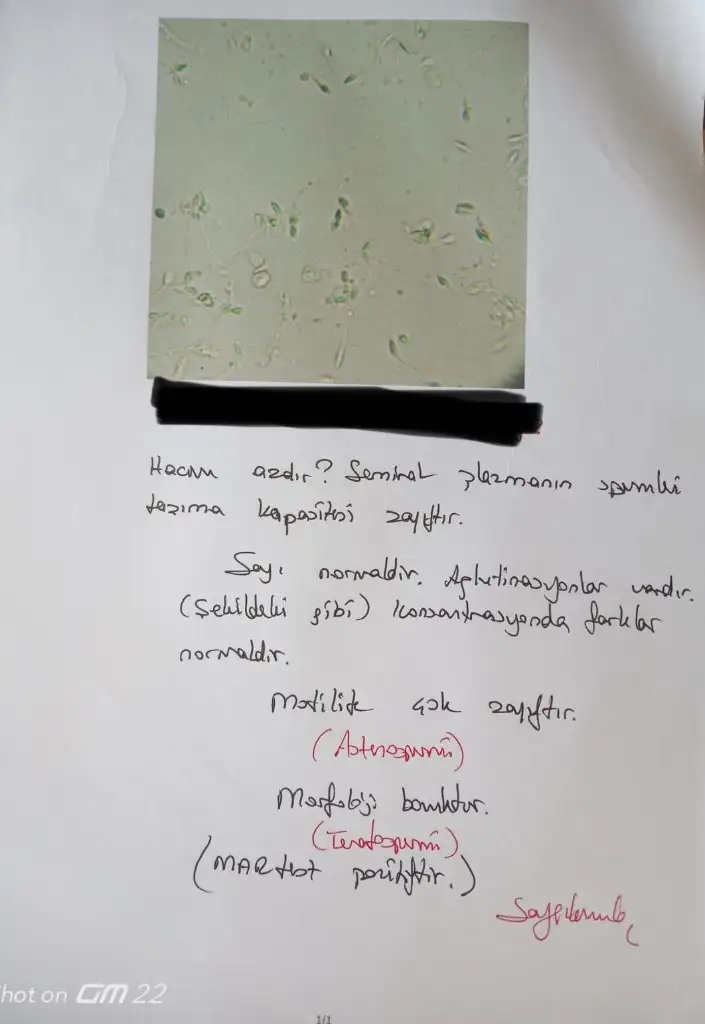 Hacim azdır? Seminal plazmanın spermleri
taşıma kapasitesi zayıftır.
Sayı normaldir. Aglutinasyonlar vardır.
(Şekildeki gibi) Konsantrasyonda farklar
normaldir.
Motilite çok zayıftır.
(Astenospermi)
Morfoloji bozuktur.
(Teratospermi)
(MAR test pozitiftir.)
Saygılarımla,
Shot on GM 22
1/1